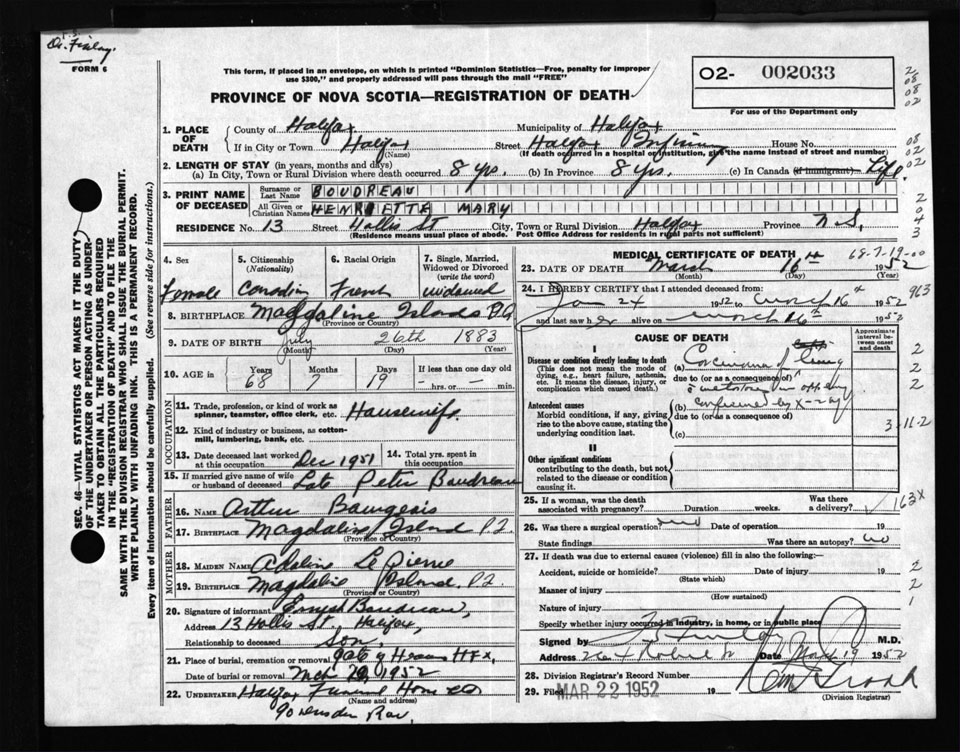 Dr. Finlay
FORM 6
This form, if placed in an envelope, on which is printed "Dominion Statistics—Free, penalty for improper
use $300," and properly addressed will pass through the mail "FREE"
PROVINCE OF NOVA SCOTIA—REGISTRATION OF DEATH
02- 002033
For use of the Department only
SEC. 46—VITAL STATISTICS ACT MAKES IT THE DUTY
OF THE UNDERTAKER OR PERSON ACTING AS UNDER-
TAKER TO OBTAIN ALL THE PARTICULARS REQUIRED
IN THE "REGISTRATION OF DEATH" AND TO FILE THE
SAME WITH THE DIVISION REGISTRAR WHO SHALL ISSUE THE BURIAL PERMIT.
WRITE PLAINLY WITH UNFADING INK. THIS IS A PERMANENT RECORD.
Every item of information should be carefully supplied. (See reverse side for instructions.)
1. PLACE OF DEATH
County of Halifax Municipality of Halifax
If in City or Town Halifax Street Halifax House No.
(Name) (If death occurred in a hospital or institution, give the name instead of street and number)
2. LENGTH OF STAY (in years, months and days)
(a) In City, Town or Rural Division where death occurred 8 yrs. (b) In Province 8 yrs. (c) In Canada (if immigrant) Life.
3. PRINT NAME OF DECEASED
Surname or Last Name BOUDREAU
All Given or Christian Names HENRIETTE MARY
RESIDENCE No. 13 Street Hollis St City, Town or Rural Division Halifax Province N.S.
(Residence means usual place of abode. Post Office Address for residents in rural parts not sufficient)
4. Sex 5. Citizenship (Nationality) 6. Racial Origin 7. Single, Married, Widowed or Divorced (write the word)
Female Canadian French widowed
8. BIRTHPLACE Magdaline Islands P.Q.
(Province or Country)
9. DATE OF BIRTH July 26th 1883
(Month) (Day) (Year)
10. AGE in Years Months Days If less than one day old
68 7 19 — hrs. or — min.
OCCUPATION
11. Trade, profession, or kind of work as spinner, teamster, office clerk, etc. Housewife
12. Kind of industry or business, as cotton-mill, lumbering, bank, etc.
13. Date deceased last worked at this occupation Dec 1951 14. Total yrs. spent in this occupation
15. If married give name of wife or husband of deceased Late Peter Boudreau
FATHER
16. NAME Arthur Bourgeois
17. BIRTHPLACE Magdaline Island P.Q.
(Province or Country)
MOTHER
18. MAIDEN NAME Adeline Le Pierre
19. BIRTHPLACE Magdalie Island, P.Q.
(Province or Country)
20. Signature of informant Boudreau,
Address 13 Hollis St, Halifax,
Relationship to deceased Son.
21. Place of burial, cremation or removal Gate of Heaven HFx.
Date of burial or removal Mch 20, 1952
22. UNDERTAKER Halifax Funeral Home
(Name and address)
MEDICAL CERTIFICATE OF DEATH 68-7-19-00
23. DATE OF DEATH March 16th 1952
(Month) (Day) (Year)
24. I HEREBY CERTIFY that I attended deceased from:
Jan 24 1952 to March 16th 1952 963
and last saw her alive on March 16th 1952
CAUSE OF DEATH
Approximate interval between onset and death
I
Disease or condition directly leading to death
(This does not mean the mode of dying, e.g., heart failure, asthenia, etc. It means the disease, injury, or complication which caused death.)
(a) Carcinoma of lung
due to (or as a consequence of)
Antecedent causes
Morbid conditions, if any, giving rise to the above cause, stating the underlying condition last.
(b) confirmed by X-ray
due to (or as a consequence of)
(c)
3-11-2
II
Other significant conditions
contributing to the death, but not related to the disease or condition causing it.
25. If a woman, was the death associated with pregnancy? Duration weeks. Was there a delivery? 163X
26. Was there a surgical operation? Date of operation 19
State findings Was there an autopsy? no
27. If death was due to external causes (violence) fill in also the following:—
Accident, suicide or homicide? Date of injury 19
(State which)
Manner of injury
(How sustained)
Nature of injury
Specify whether injury occurred in industry, in home, or in public place
Signed by M.D.
Address Date March 19 1952
28. Division Registrar's Record Number
29. Filed MAR 22 1952 19
(Division Registrar)